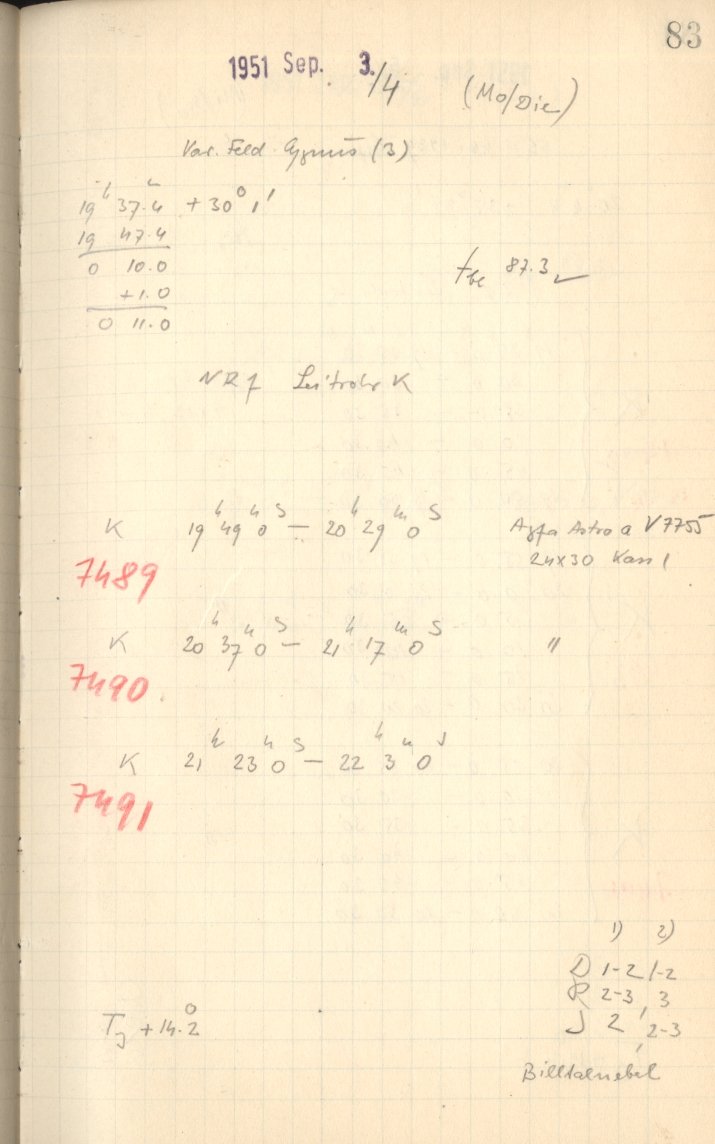 83
1951 Sep. 3./4 (Mo/Die)
Var. Feld Cygnus (3)
19ʰ 37.4ᵐ +30° 1'
19 47.4
0 10.0
+1.0
0 11.0
87.3
NR 7 Leitrohr K
K 19ʰ 49ᵐ 0ˢ – 20ʰ 29ᵐ 0ˢ Agfa Astro a V7755
7489
24x30 Kass 1
K 20ʰ 37ᵐ 0ˢ – 21ʰ 17ᵐ 0ˢ "
7490
K 21ʰ 23ᵐ 0ˢ – 22ʰ 3ᵐ 0ˢ
7491
1) 2)
D 1-2, 1-2
R 2-3, 3
J 2, 2-3
T_J +14.2°